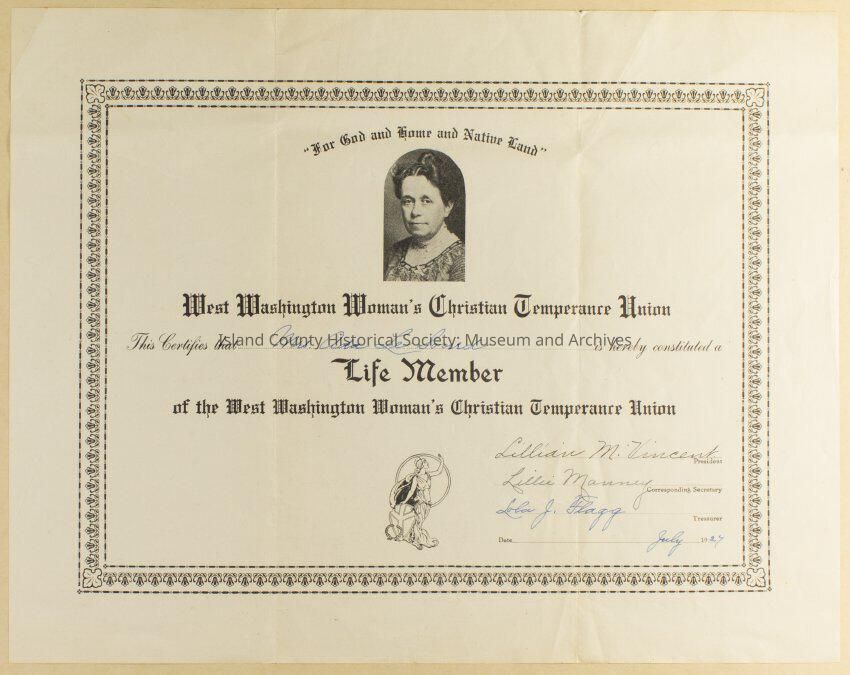 "For God and Home and Native Land"
West Washington Woman's Christian Temperance Union
This Certifies that Mrs. is hereby constituted a
Island County Historical Society; Museum and Archives
Life Member
of the West Washington Woman's Christian Temperance Union
Lillian M. Vincent
President
Lillie Manney
Corresponding Secretary
Lola J. Flagg
Treasurer
Date July 1927